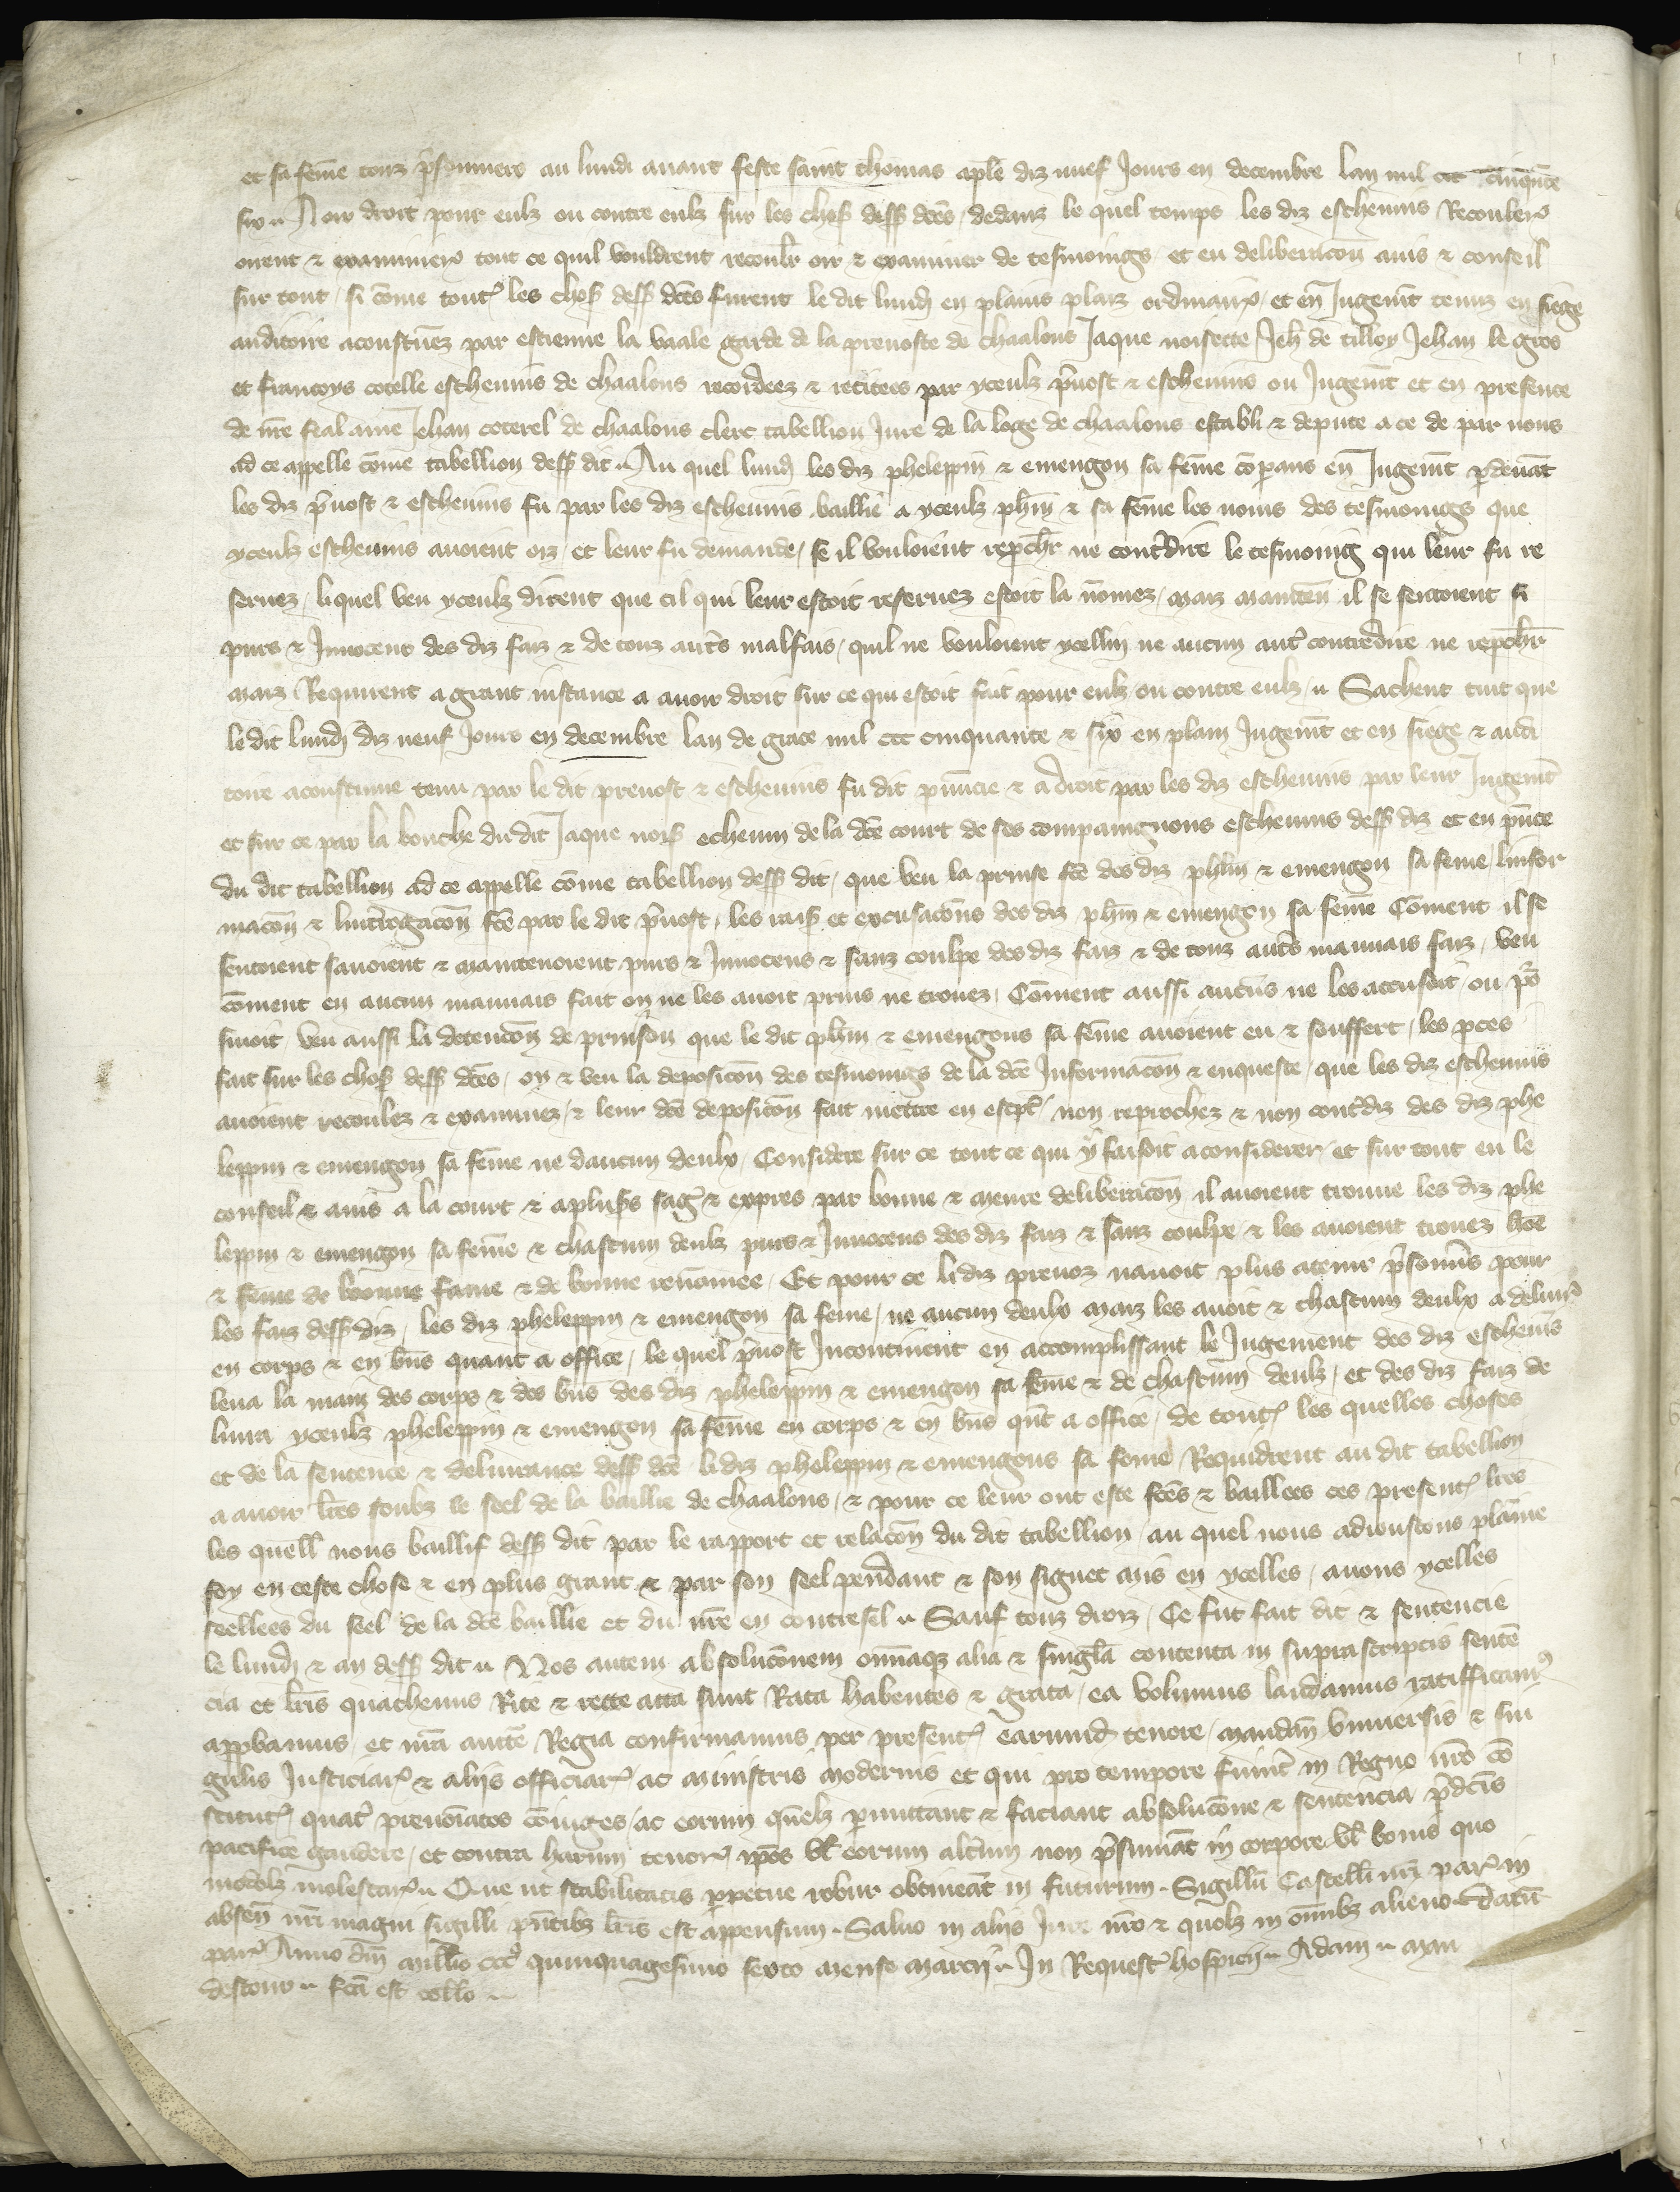 et sa fem̄e touz p̄sonniers au lundi auant feste saint thomas aplē diz nuef Jours en decembre lan mil ccc cinqute
six ~ A oir droit pour eulz ou contre eulz sur les chos dess dcēs / dedanz le quel temps les diz escheuins Recouler
oirent ⁊ examiner tout ce quil vouldrent recoulr oir ⁊ examiner de tesmoings et eu deliberacōn auis ⁊ conseil
sur tout / si cōme toutes les chos dess dcēs furent le dit lundj en plains plaiz ordinaires / et en Jugemt tenuz en siege
auditoire acoustumez par estienne la vaale garde de la preuoste de chaalons Jaque noisette Jeh de tilloy Jehan le gros
et francoys cotelle escheuins de chaalons recordees ⁊ recitees par yceulz p̄uost ⁊ escheuins ou Jugemt et en presence
de nr̄e feal ame Jehan coterel de chaalons clerc tabellion Jure de la loge de chaalons establi ⁊ depute a ce de par nous
ad ce appelle cōme tabellion dess dit ~ Au quel lundj les diz pheleppin ⁊ emengon sa fem̄e cōparans en Jugemt pdeuāt
les diz p̄uost ⁊ escheuins fu par les diz escheuins baillie a yceulz phin ⁊ sa fem̄e les noms des tesmoings que
yceulz escheuins auoient oiz / et leur fu demande / se il vouloient repchr ne contdire le tesmoing qui leur fu re
seruez / liquel veu yceulz dirent que cil qui leur estoit reseruez estoit la nōmez / maiz mainten il se sentoient si
purs ⁊ Innocent des diz faiz ⁊ de touz autrs malfais / quil ne vouloient ycellui ne aucun autr contredire ne repchr
maiz Requirent a grant instance a auoir droit sur ce qui estoit fait pour eulz ou contre eulz ~ Sachent tuit que
le dit lundj diz neuf Jours en decembre lan de grace mil ccc cinquante ⁊ six en plain Jugemt et en siege ⁊ audi
toire acoustume tenu par le dit preuost ⁊ escheuins fu dit pnuncie ⁊ a droit par les diz escheuins par leur Jugemt
et sur ce par la bouche du dit Jaque nois echeuin de la dcē court de ses compaingnons escheuins dess diz et en pn̄ce
du dit tabellion ad ce appelle cōme tabellion dess dit / que veu la prinse fcē des diz phin ⁊ emengon sa feme / linfor
macōn ⁊ lintrogacōn fcē par le dit p̄uost / les rais et excusacōns des diz phin ⁊ emengon sa feme Cōment il se
sentoient sauoient ⁊ maintenoient purs ⁊ Innocens ⁊ sanz coulpe des diz faiz ⁊ de touz autrs mauuais faiz / veu
cōment en aucun mauuais fait on ne les auoit prins ne trouez / Cōment aussi aucuns ne les accusoit ou po
siuoit / veu aussi la detencōn de prinson que le dit phin ⁊ emengons sa fem̄e auoient eu ⁊ souffert / les pces
fait sur les chos dess dcēs / oy ⁊ veu la deposicōn des tesmoings de la dcē Informacōn ⁊ enqueste / que les diz escheuins
auoient recoulez ⁊ examinez / ⁊ leur dcē deposicōn fait mettre en escpt / non reprochez ⁊ non contdiz des diz phe
leppin ⁊ emengon sa fem̄e ne daucun deulx / Considere sur ce tout ce qui y faisoit a considerer / et sur tout eu le
conseil ⁊ auis a la court ⁊ a plusrs sages ⁊ expres par bonne ⁊ meure deliberacōn il auoient trouue les diz phe
leppin ⁊ emengon sa fem̄e ⁊ chascun deulz purs ⁊ Innocens des diz faiz ⁊ sanz coulpe ⁊ les auoient trouez hōe
⁊ feme de bonne fame ⁊ de bonne renōmee / Et pour ce li diz preuoz nauoit plus a tenir p̄sonnrs pour
les faiz dess diz / les diz pheleppin ⁊ emengon sa feme / ne aucun deulx maiz les auoit ⁊ chascun deulx a deliurer
en corps ⁊ en bn̄s quant a office / le quel p̄uost Incontinent en accomplissant le Jugement des diz escheuins
leua la main des corps ⁊ des bn̄s des diz pheleppin ⁊ emengon sa fem̄e ⁊ de chascun deulz / et des diz faiz de
liura yceulz pheleppin ⁊ emengon sa fem̄e en corps ⁊ en bn̄s qnt a office / de toutes les quelles choses
et de la sentence ⁊ deliurance dess dcē li diz pheleppin ⁊ emengons sa feme Requidrent au dit tabellion
a auoir lr̄es soubz le seel de la baillie de chaalons / ⁊ pour ce leur ont este fcēs ⁊ baillees ces presentes lr̄es
les quelles nous baillif dess dit par le rapport et relacōn du dit tabellion / au quel nous adioustons plaine
foy en ceste chose ⁊ en plus grant ⁊ par son seel pendant ⁊ son signet mis en ycelles / auons ycelles
seellees du seel de la dcē baillie et du nr̄e en contresel ~ Sauf touz droiz / Ce fut fait dit ⁊ sentencie
le lundj ⁊ an dess dit ~ Nos autem absolucōnem omniaqz alia ⁊ singula contenta in suprascriptis senten
cia et lr̄is quathenus Rite ⁊ recte acta sunt Rata habentes ⁊ grata / ea volumus laudamus ratifficamus
appbamus et nr̄a aucte Regia confirmamus per presentes earund tenore / mandan vniuersis ⁊ sin
gulis Justiciar ⁊ aliis officiar ac ministris modernis et qui pro tempore fuint in Regno nr̄o cō
stitut quat prenoīatos cōiuges / ac eorum quelz pmittant ⁊ faciant absolucōne ⁊ sentencia p̄dcīs
pacifice gaudere / et contra harum tenor ipōs vl eorum altum non p̄sumāt in corpore vl bonis quo
modolz molestar ~ Que ut stabilitatis ppetue robur obtineāt in futurum ~ Sigillū Castelli nr̄i par in
absen nr̄i magni sigilli pn̄tibz lr̄is est appensum ~ Saluo in aliis Jure nr̄o ⁊ quolz in om̄ibz alieno ~ Datū
par Anno dn̄i millīo ccco quinquagesimo sexto mense marcii ~ In Request hospicii ~ Adam ~ myn
destour ~ fcā est collō ~